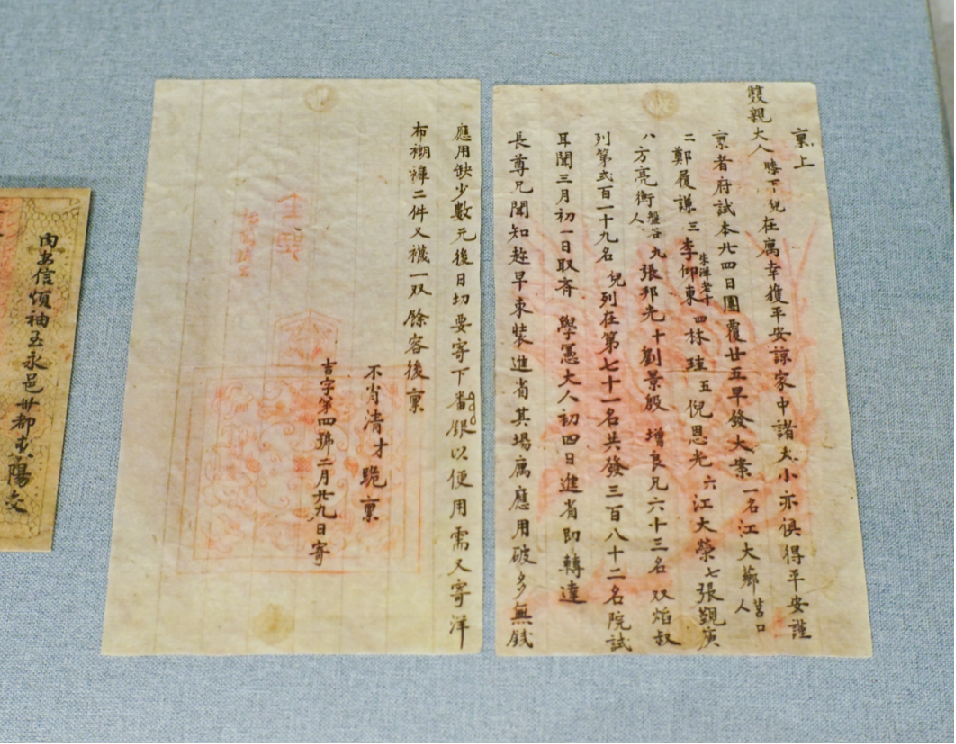 稟上
雙親
大人膝下兒在寓幸獲平安諒家中諸大小亦俱得平安謹
稟者府試本廿四日團覆廿五早發大案一名江大薌莒口人
二鄭履謙三李仰東 四林珪五倪恩光六江大榮七張觀廣
八方亮衡盤谷人九張邦光十劉景殷 增良兄六十三名双焰叔
列第弍百一十九名 兒列在第七十一名共發三百八十二名院試
耳聞三月初一日取齊 學憲大人初四日進省即轉達
長尊兄聞知趁早束裝進省其場寓應用破多無錢
應用缺少數元後日切要寄下番銀以便用需又寄洋
布裯褲二件又襪一双餘容後稟
不肖清才跪稟
吉字第四號二月廿九日寄
內要信煩袖至永邑卅都 陽交